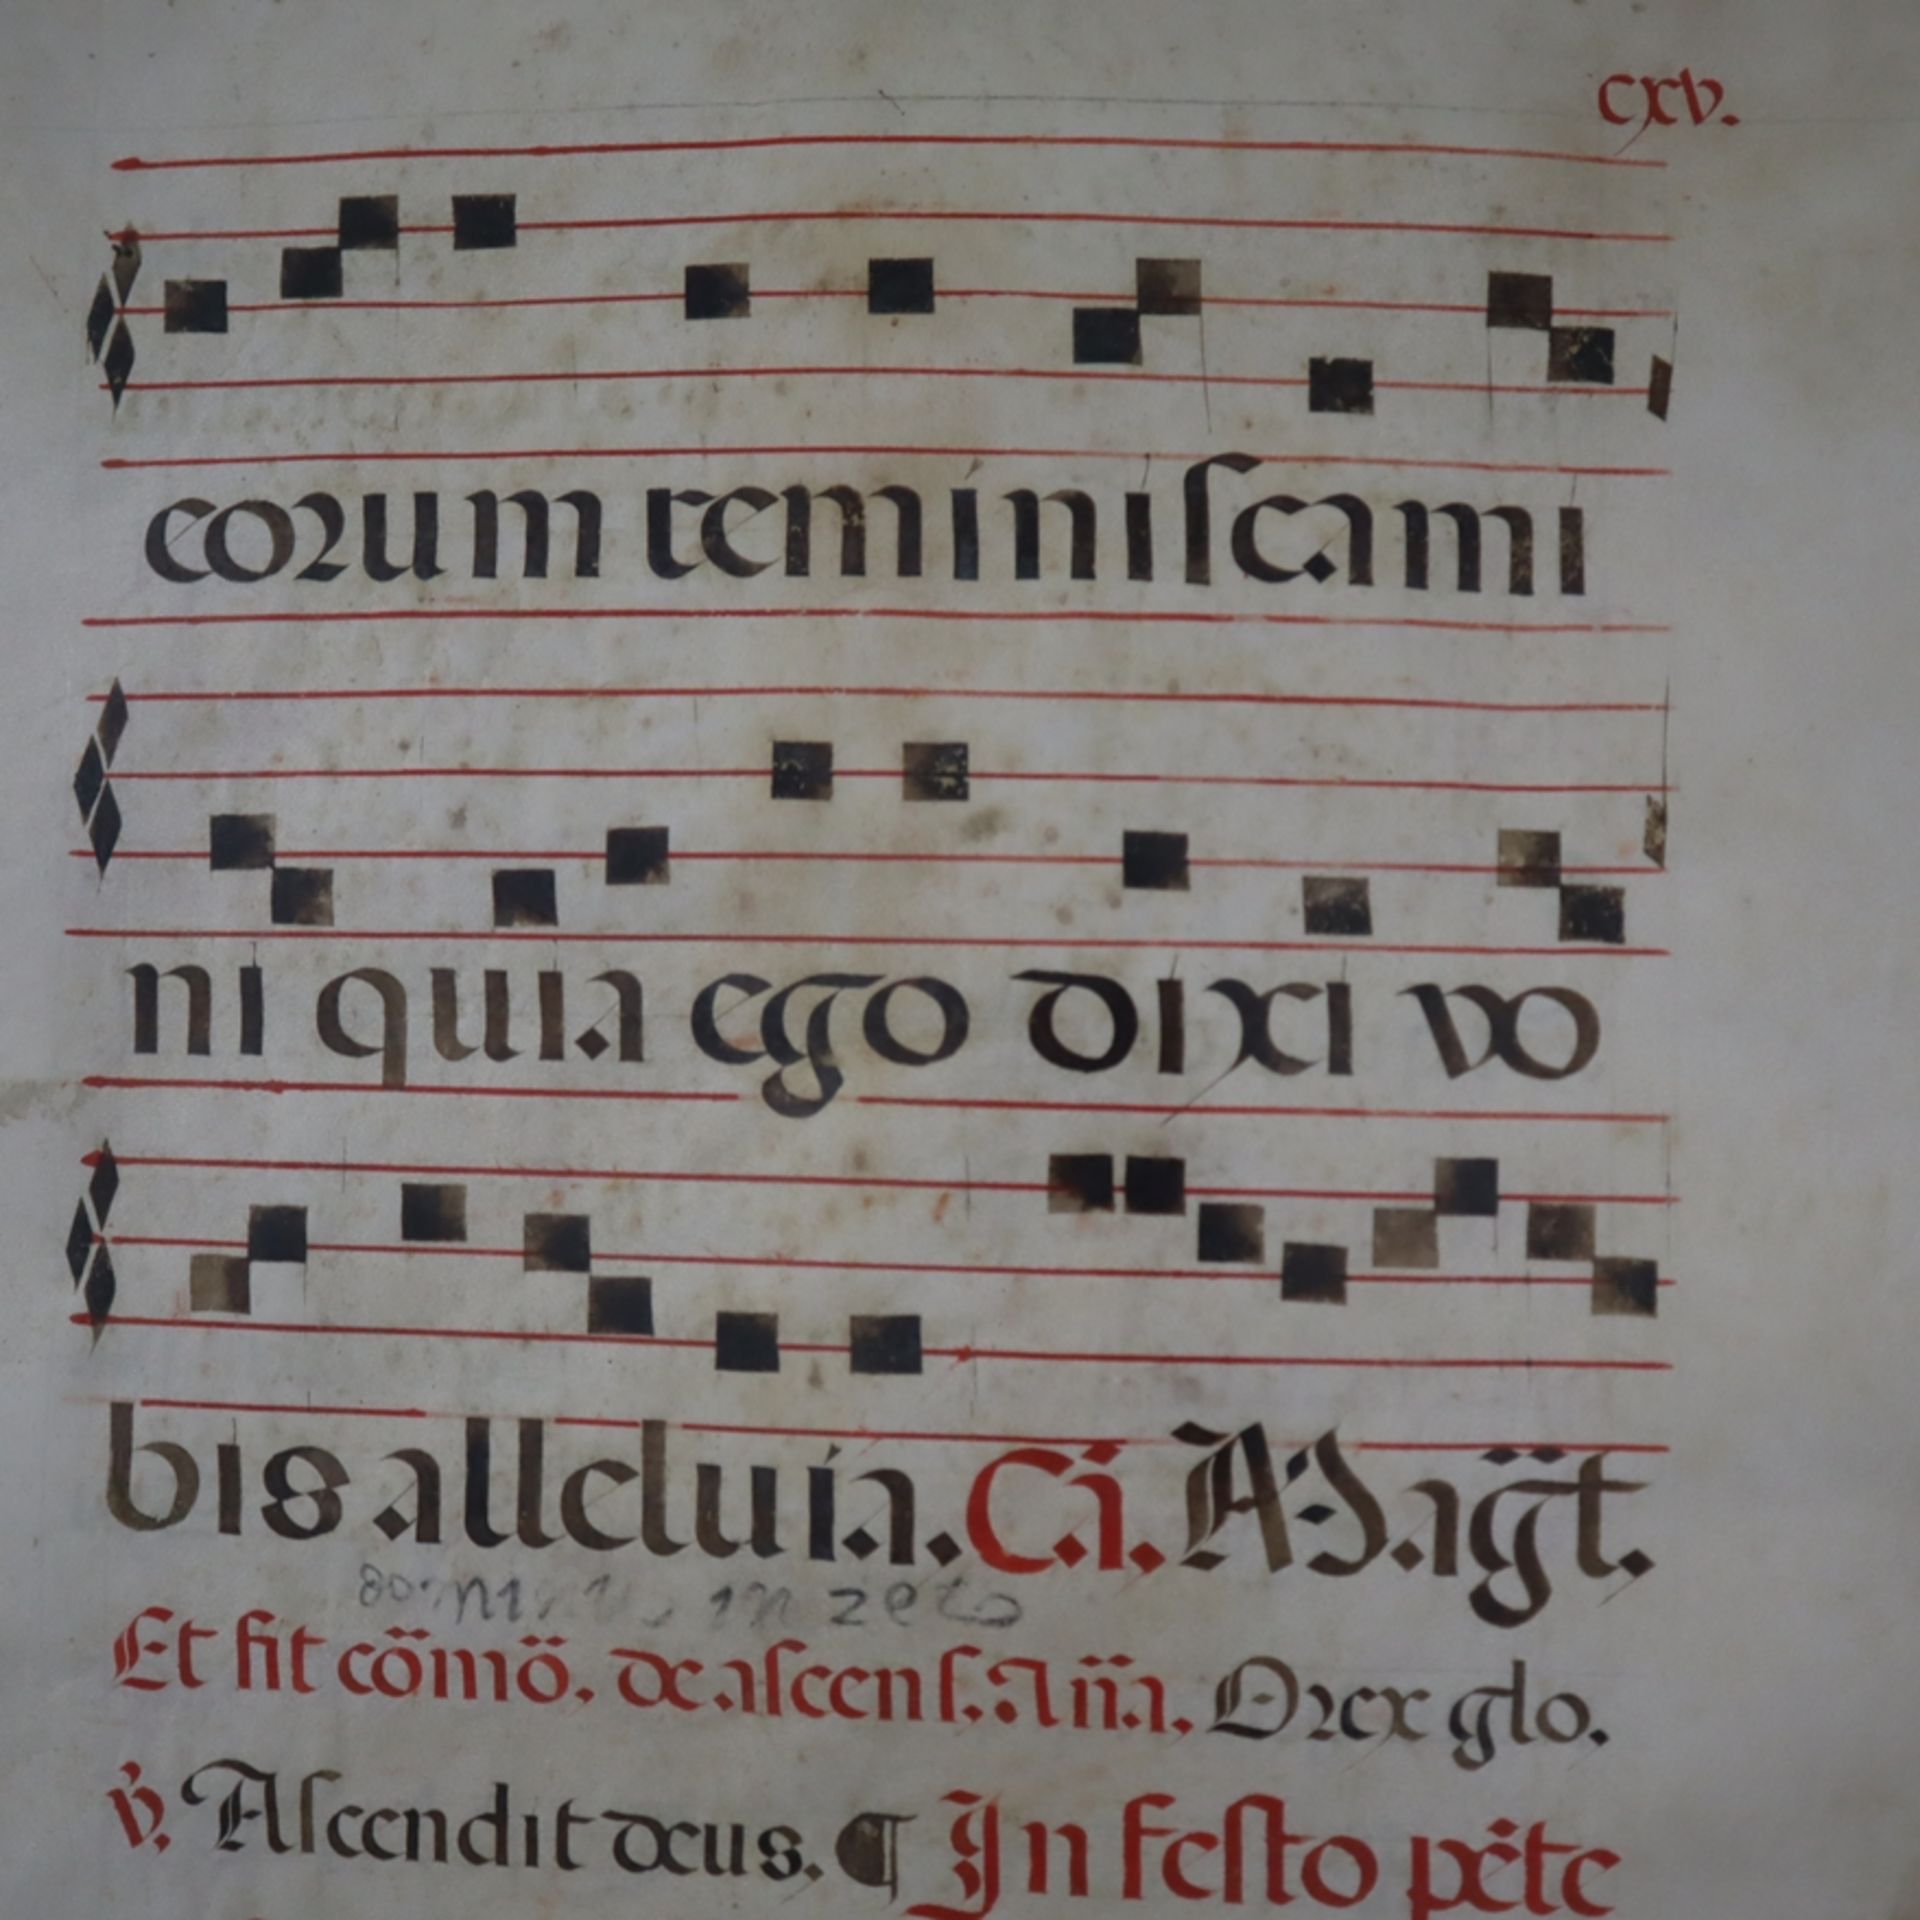 cxv.
eorum reminiscami
ni quia ego dixi vo
bis alleluia. Cā. Magt.
in zelo
Et fit cōmō. de ascens. Añā. O rex glo.
℣. Ascendit deus. ¶ In festo pēte